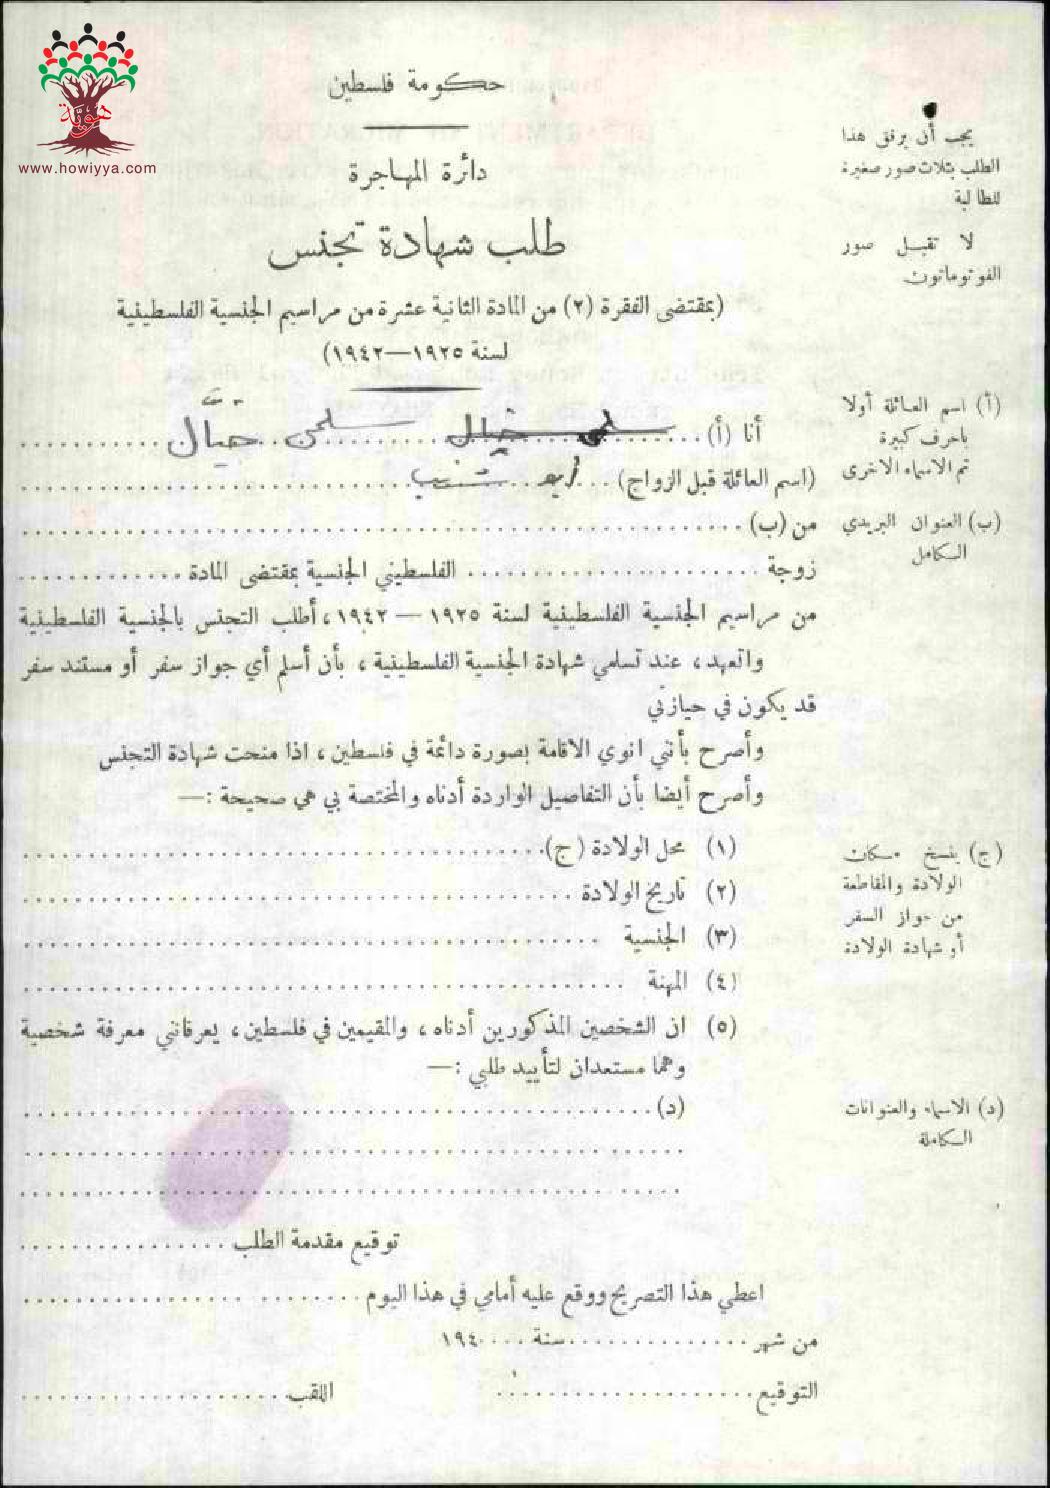 هوية
www.howiyya.com
حكومة فلسطين
دائرة المهاجرة
طلب شهادة تجنس
(بمقتضى الفقرة (٢) من المادة الثانية عشرة من مراسيم الجنسية الفلسطينية
لسنة ١٩٢٥—١٩٤٢)
يجب أن يرفق هذا
الطلب بثلاث صور صغيرة
للطالبة
لا تقبل صور
الفوتوماتون
أنا (أ) سلمى خيال سلمى خيّال
(اسم العائلة قبل الزواج) أبو شنب
من (ب)
زوجة الفلسطيني الجنسية بمقتضى المادة
من مراسيم الجنسية الفلسطينية لسنة ١٩٢٥ — ١٩٤٢، أطلب التجنس بالجنسية الفلسطينية
واتعهد، عند تسلمي شهادة الجنسية الفلسطينية، بأن أسلم أي جواز سفر أو مستند سفر
قد يكون في حيازتي
وأصرح بأنني انوي الاقامة بصورة دائمة في فلسطين، اذا منحت شهادة التجنس
وأصرح أيضا بأن التفاصيل الواردة أدناه والمختصة بي هي صحيحة :—
(١) محل الولادة (ج)
(٢) تاريخ الولادة
(٣) الجنسية
(٤) المهنة
(٥) ان الشخصين المذكورين أدناه، والمقيمين في فلسطين، يعرفانني معرفة شخصية
وهما مستعدان لتأييد طلبي :—
(د)
توقيع مقدمة الطلب
اعطي هذا التصريح ووقع عليه أمامي في هذا اليوم
من شهر سنة ١٩٤٠
التوقيع اللقب
(أ) اسم العائلة أولا
باحرف كبيرة
ثم الاسماء الاخرى
(ب) العنوان البريدي
الكامل
(ج) ينسخ مكان
الولادة والمقاطعة
من جواز السفر
أو شهادة الولادة
(د) الاسماء والعنوانات
الكاملة